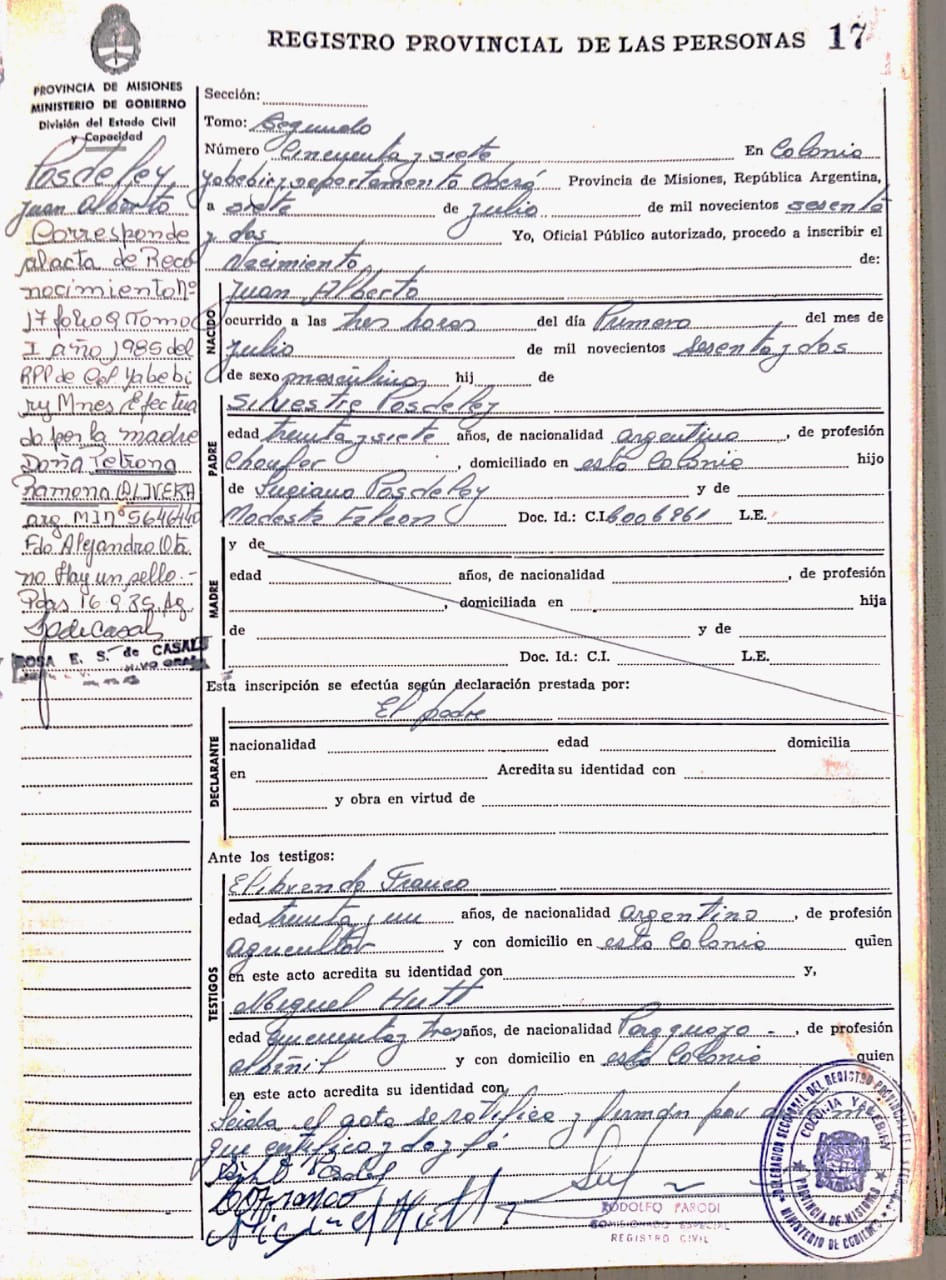 REGISTRO PROVINCIAL DE LAS PERSONAS 17
PROVINCIA DE MISIONES
MINISTERIO DE GOBIERNO
División del Estado Civil
y Capacidad
Posdeley
Juan Alberto
Corresponde
al acta de Reco
nocimiento Nº
17 folio 9 Tomo
I año 1985 del
RPP de Col Yabebi
ry Mnes Efectua
do por la madre
Doña Petrona
Ramona OLIVERA
arg. MI Nº 5646440
Fdo. Alejandro
no. Hay un sello.-
Pdas 16.9.85.
ROSA E. S. de CASALS
Sección:
Tomo: Segundo
Número Cincuenta y siete En Colonia
Yabebiry departamento Oberá Provincia de Misiones, República Argentina,
a siete de julio de mil novecientos sesenta
y dos Yo, Oficial Público autorizado, procedo a inscribir el
Nacimiento de:
NACIDO
Juan Alberto
ocurrido a las tres horas del día Primero del mes de
Julio de mil novecientos sesenta y dos
de sexo masculino hij de
PADRE
Silvestre Posdeley
edad treinta y siete años, de nacionalidad argentino, de profesión
Choufer, domiciliado en esta Colonia hijo
de Luciano Posdeley y de
Modesta Falcon Doc. Id.: C.I. 6006961 L.E.
MADRE
y de
edad años, de nacionalidad , de profesión
, domiciliada en hija
de y de
Doc. Id.: C.I. L.E.
Esta inscripción se efectúa según declaración prestada por:
DECLARANTE
El padre
nacionalidad edad domicilia
en Acredita su identidad con
y obra en virtud de
Ante los testigos:
TESTIGOS
Franco
edad treinta y un años, de nacionalidad argentino, de profesión
agricultor y con domicilio en esta Colonia quien
en este acto acredita su identidad con y,
Miguel Hutt
edad cincuenta y tres años, de nacionalidad Paraguaya -, de profesión
albañil y con domicilio en esta Colonia quien
en este acto acredita su identidad con
Leida el acta se ratifica y firman por
que certifico y doy fé
Franco
Miguel Hutt
RODOLFO PARODI
COMISIONADO ESPECIAL
REGISTRO CIVIL
DELEGACION SECCIONAL DEL REGISTRO PROVINCIAL DE LAS
COLONIA YABEBIRY
PROVINCIA DE MISIONES
MINISTERIO DE GOBIERNO